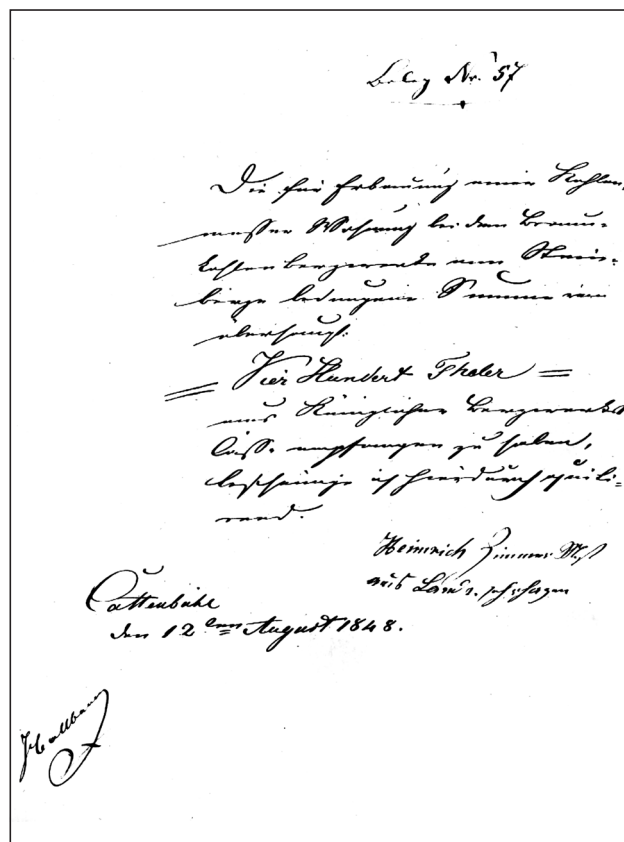 Beleg Nr. 57
Die für Erbauung einer Kohlen-
messer Wohnung bei dem Braun-
kohlenbergwerke am Stein-
berge bedungene Summe von
überhaupt:
= Vier Hundert Thaler =
aus Königlicher Bergwerks
Casse empfangen zu haben,
bescheinige ich hierdurch quiti-
rend.
Heinrich Zimmer
aus
Cattenbühl
den 12ten August 1848.